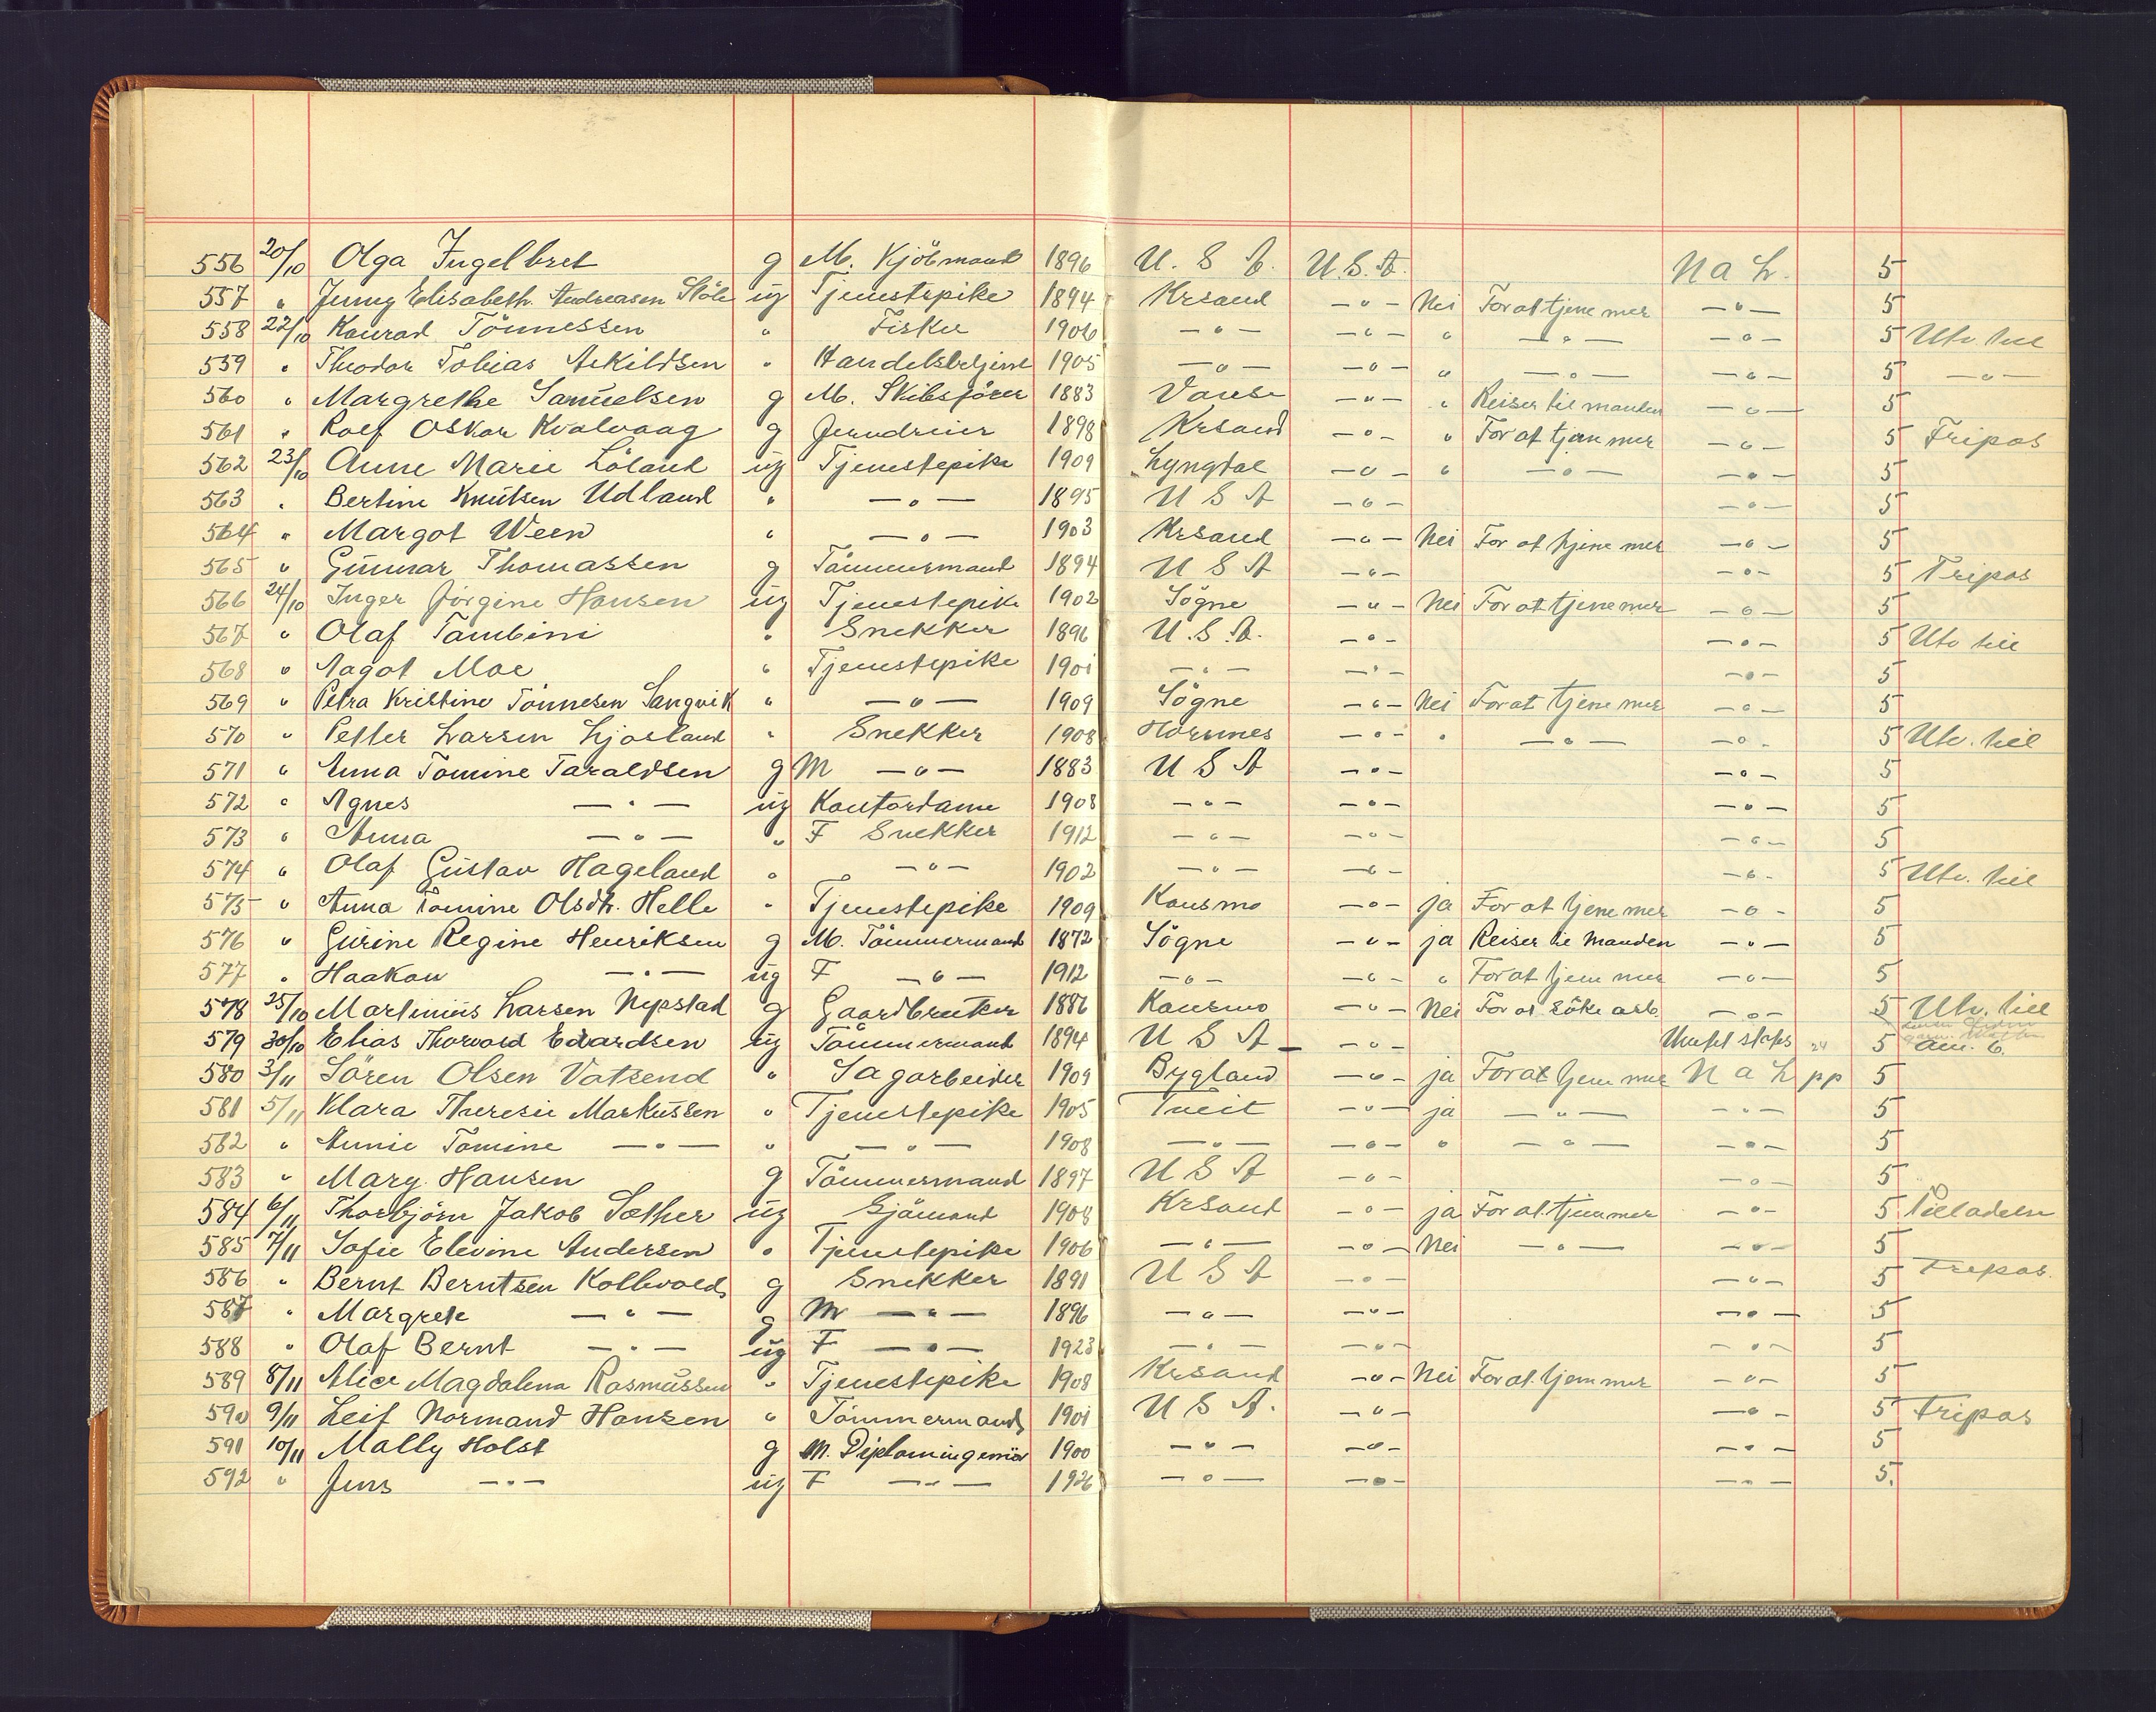 556 20/10 Olga Ingelbret g M. Kjöbmand 1896 U. S. A. U.S.A. N a L. 5
557 " Jenny Elisabeth Andreasen Stöle ug Tjenestepike 1894 Krsand —"— Nei For at tjene mer —"— 5
558 22/10 Konrad Tönnessen " Fisker 1906 —"— —"— " —"— —"— 5 Utv. till
559 " Theodor Tobias Aekildsen " Handelsbetjent 1905 —"— —"— " —"— —"— 5 —"—
560 " Margrethe Samuelsen g M. Skibsförer 1883 Vanse —"— " Reiser til manden —"— 5
561 " Rolf Oskar Kvalvaag g Jerndreier 1898 Krsand —"— " For at tjene mer —"— 5 Fripas
562 23/10 Anne Marie Löland ug Tjenestepike 1909 Lyngdal —"— " —"— —"— 5
563 " Bertine Knutsen Udland " —"— 1895 U S A —"— —"— 5
564 " Margot Ween " —"— 1903 Krsand —"— Nei For at tjene mer —"— 5
565 " Gunnar Thomassen g Tömmermand 1894 U S A —"— —"— 5 Fripas
566 24/10 Inger Jörgine Hansen ug Tjenestepike 1902 Sögne —"— Nei For at tjene mer —"— 5
567 " Olaf Tambini " Snekker 1896 U.S.A. —"— —"— 5 Utv till
568 " Aagot Moe " Tjenestepike 1901 —"— —"— —"— 5
569 " Petra Kristine Tönnesen Langvik " —"— 1909 Sögne —"— Nei For at tjene mer —"— 5
570 " Petter Larsen Ljosland " Snekker 1908 Hornnes —"— " —"— —"— 5 Utv. till
571 " Anna Tomine Taraldsen g M —"— 1883 U S A —"— —"— 5
572 " Agnes —"— ug Kontordame 1908 —"— —"— —"— 5
573 " Anna —"— " F Snekker 1912 —"— —"— —"— 5
574 " Olaf Gustav Hageland " —"— 1902 —"— —"— —"— 5 Utv. till
575 " Anna Tomine Olsdtr. Helle " Tjenestepike 1909 Konsmo —"— ja For at tjene mer —"— 5
576 " Gurine Regine Henriksen g M. Tömmermand 1872 Sögne —"— ja Reiser til Manden —"— 5
577 " Haakon —"— ug F —"— 1912 —"— —"— " For at tjene mer —"— 5
578 25/10 Martinius Larsen Nepstad g Gaardbruker 1886 Konsmo —"— Nei For at söke arb. —"— 5 Utv. till
579 30/10 Elias Thorvald Edvardsen ug Tömmermand 1894 U S A —"— 24 5 Am. 6.
580 3/11 Sören Olsen Vatsend " Sagarbeider 1909 Bygland —"— ja For at tjene mer N a L pp 5
581 5/11 Klara Theresie Markussen " Tjenestepike 1905 Tveit —"— ja —"— —"— 5
582 " Annie Tomine —"— " —"— 1908 —"— —"— " —"— —"— 5
583 " Mary Hansen g Tömmermand 1897 U S A —"— —"— 5
584 6/11 Thorbjörn Jakob Sæther ug Sjömand 1908 Krsand —"— ja For at tjene mer —"— 5 Tilladelse
585 7/11 Sofie Elevine Andersen " Tjenestepike 1906 —"— —"— Nei —"— —"— 5
586 " Bernt Berntsen Kollevold g Snekker 1891 U S A —"— —"— 5 Fripas.
587 " Margrete —"— g M —"— 1896 —"— —"— —"— 5
588 " Olaf Bernt —"— ug F —"— 1923 —"— —"— —"— 5
589 8/11 Alice Magdalena Rasmussen " Tjenestepike 1908 Krsand —"— Nei For at tjene mer —"— 5
590 9/11 Leif Normand Hansen " Tömmermand 1901 U S A. —"— —"— 5 Fripas
591 10/11 Mally Holst g M. Diplomingeniör 1900 —"— —"— —"— 5
592 " Jens —"— ug F —"— 1926 —"— —"— —"— 5.